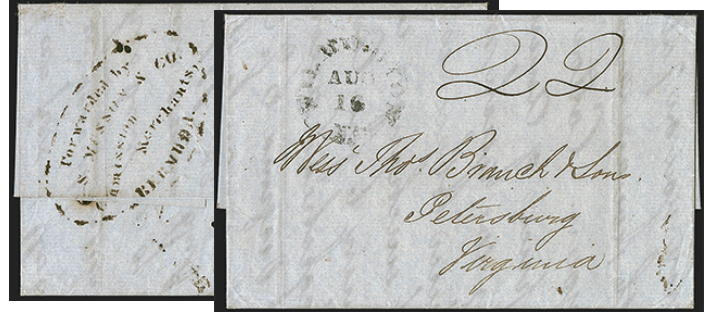 Forwarded by
S MUSSON & CO.
mmission
Merchants,
BERMUDA
WILMINGTON
AUG
16
22
Mess^rs Tho^s. Branch & Sons.
Petersburg
Virginia